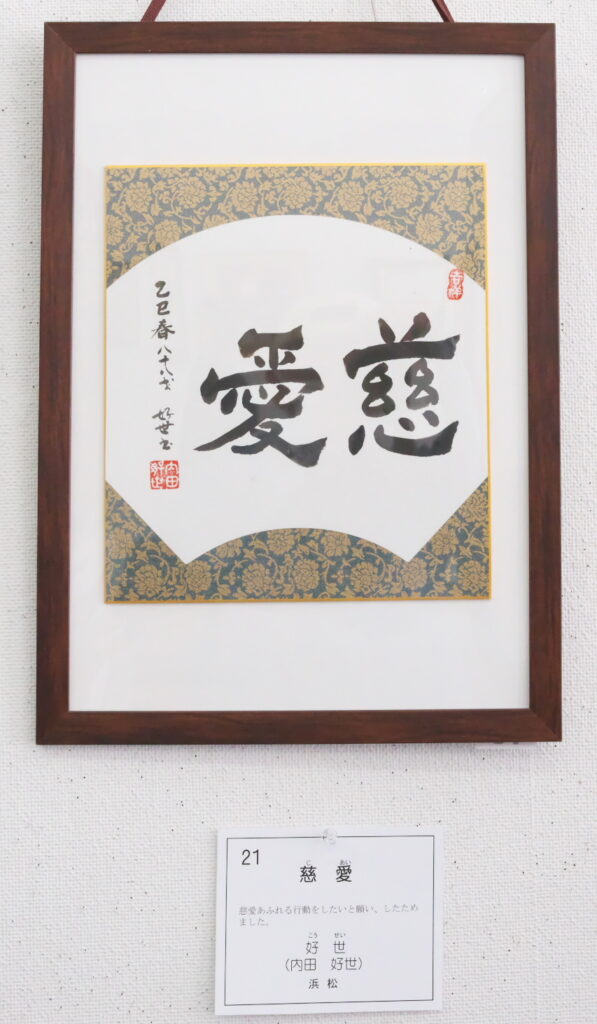 慈愛
乙巳春八十八才 好世書
吉祥
内田
好世
21
じ あい
慈 愛
慈愛あふれる行動をしたいと願い、したため
ました。
こう せい
好 世
(内田 好世)
浜 松